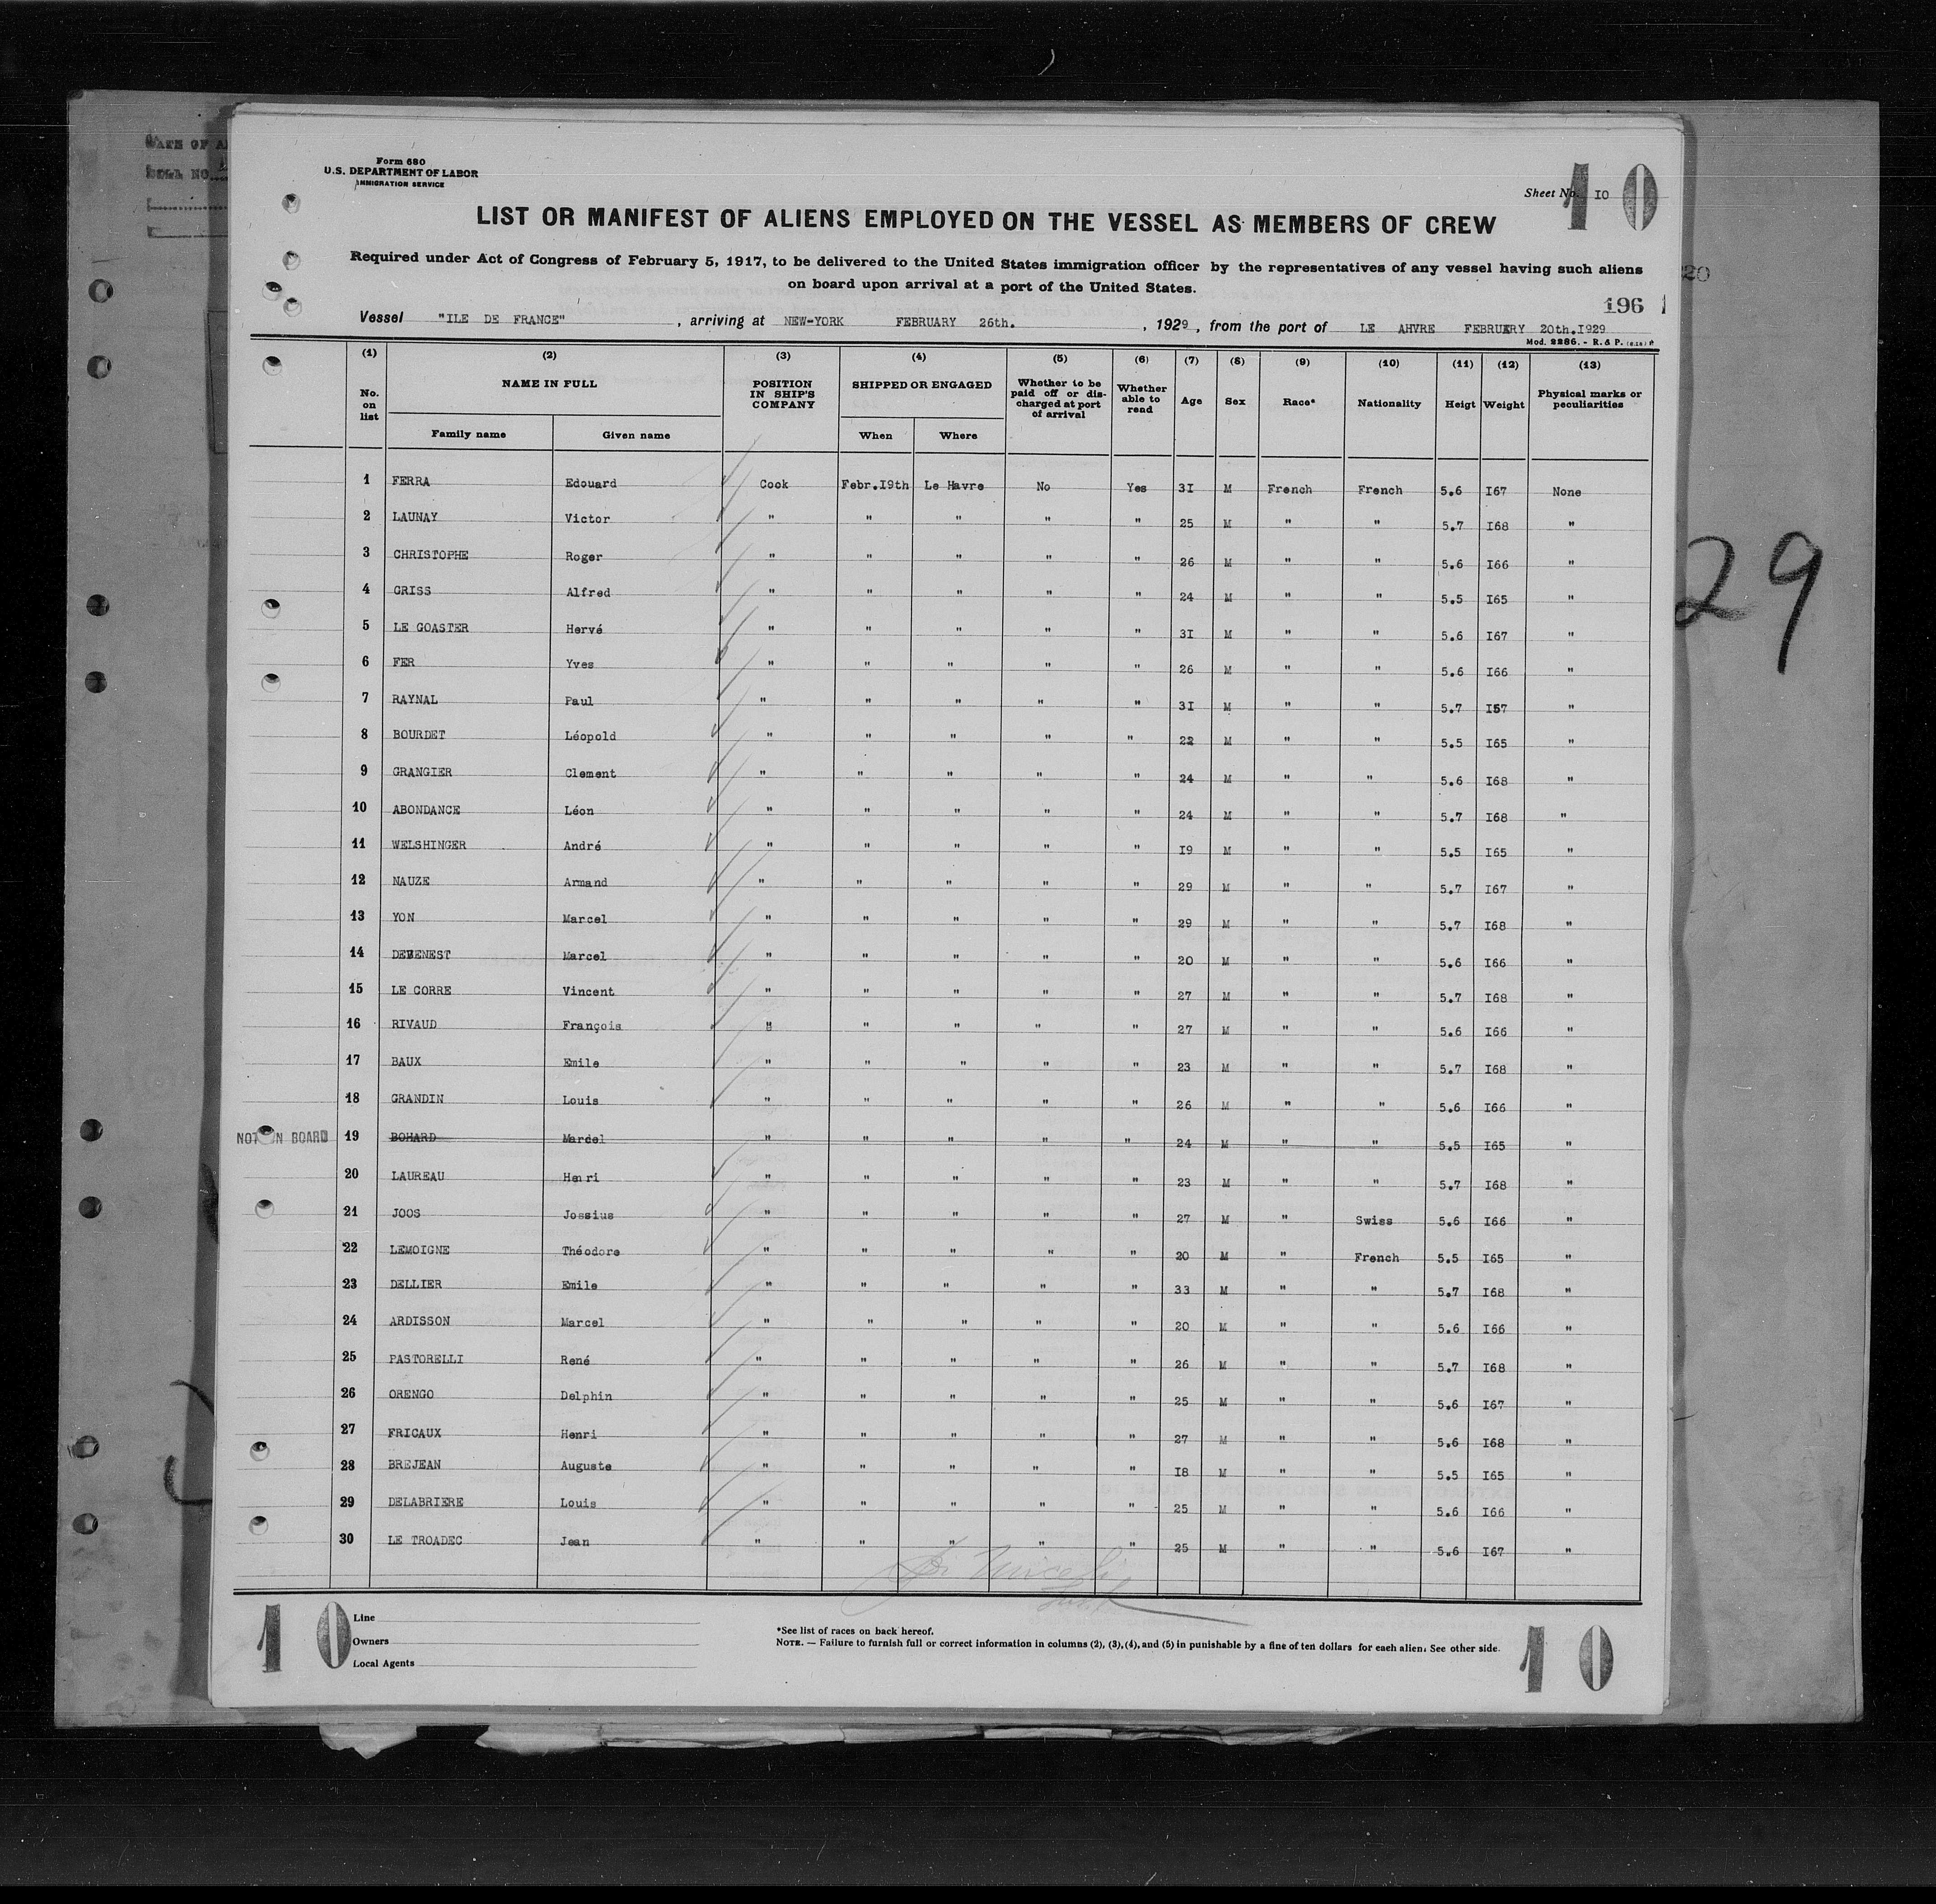 Form 680
U.S. DEPARTMENT OF LABOR
IMMIGRATION SERVICE
Sheet No. IO
10
LIST OR MANIFEST OF ALIENS EMPLOYED ON THE VESSEL AS MEMBERS OF CREW
Required under Act of Congress of February 5, 1917, to be delivered to the United States immigration officer by the representatives of any vessel having such aliens
on board upon arrival at a port of the United States.
196
Vessel "ILE DE FRANCE" , arriving at NEW-YORK FEBRUARY 26th. , 1929 , from the port of LE AHVRE FEBRUERY 20th.I929
Mod. 2286. - R. & P.
(1) (2) (3) (4) (5) (6) (7) (8) (9) (10) (11) (12) (13)
No. on list NAME IN FULL POSITION IN SHIP'S COMPANY SHIPPED OR ENGAGED Whether to be paid off or discharged at port of arrival Whether able to read Age Sex Race* Nationality Heigt Weight Physical marks or peculiarities
Family name Given name When Where
1 FERRA Edouard Cook Febr.I9th Le Havre No Yes 3I M French French 5.6 I67 None
2 LAUNAY Victor " " " " " 25 M " " 5.7 I68 "
3 CHRISTOPHE Roger " " " " " 26 M " " 5.6 I66 "
4 GRISS Alfred " " " " " 24 M " " 5.5 I65 "
5 LE GOASTER Hervé " " " " " 3I M " " 5.6 I67 "
6 FER Yves " " " " " 26 M " " 5.6 I66 "
7 RAYNAL Paul " " " " " 3I M " " 5.7 I57 "
8 BOURDET Léopold " " " " " 22 M " " 5.5 I65 "
9 GRANGIER Clement " " " " " 24 M " " 5.6 I68 "
10 ABONDANCE Léon " " " " " 24 M " " 5.7 I68 "
11 WELSHINGER André " " " " " I9 M " " 5.5 I65 "
12 NAUZE Armand " " " " " 29 M " " 5.7 I67 "
13 YON Marcel " " " " " 29 M " " 5.7 I68 "
14 Marcel " " " " " 20 M " " 5.6 I66 "
15 LE CORRE Vincent " " " " " 27 M " " 5.7 I68 "
16 RIVAUD François " " " " " 27 M " " 5.6 I66 "
17 BAUX Emile " " " " " 23 M " " 5.7 I68 "
18 GRANDIN Louis " " " " " 26 M " " 5.6 I66 "
NOT ON BOARD 19 BOHARD Marcel " " " " " 24 M " " 5.5 I65 "
20 LAUREAU Henri " " " " " 23 M " " 5.7 I68 "
21 JOOS Jossius " " " " " 27 M " Swiss 5.6 I66 "
22 LEMOIGNE Théodore " " " " " 20 M " French 5.5 I65 "
23 DELLIER Emile " " " " " 33 M " " 5.7 I68 "
24 ARDISSON Marcel " " " " " 20 M " " 5.6 I66 "
25 PASTORELLI René " " " " " 26 M " " 5.7 I68 "
26 ORENGO Delphin " " " " " 25 M " " 5.6 I67 "
27 FRICAUX Henri " " " " " 27 M " " 5.6 I68 "
28 BREJEAN Auguste " " " " " I8 M " " 5.5 I65 "
29 DELABRIERE Louis " " " " " 25 M " " 5.6 I66 "
30 LE TROADEC Jean " " " " " 25 M " " 5.6 I67 "
Line
Owners
Local Agents
*See list of races on back hereof.
NOTE. — Failure to furnish full or correct information in columns (2), (3), (4), and (5) in punishable by a fine of ten dollars for each alien. See other side.
10
10
29